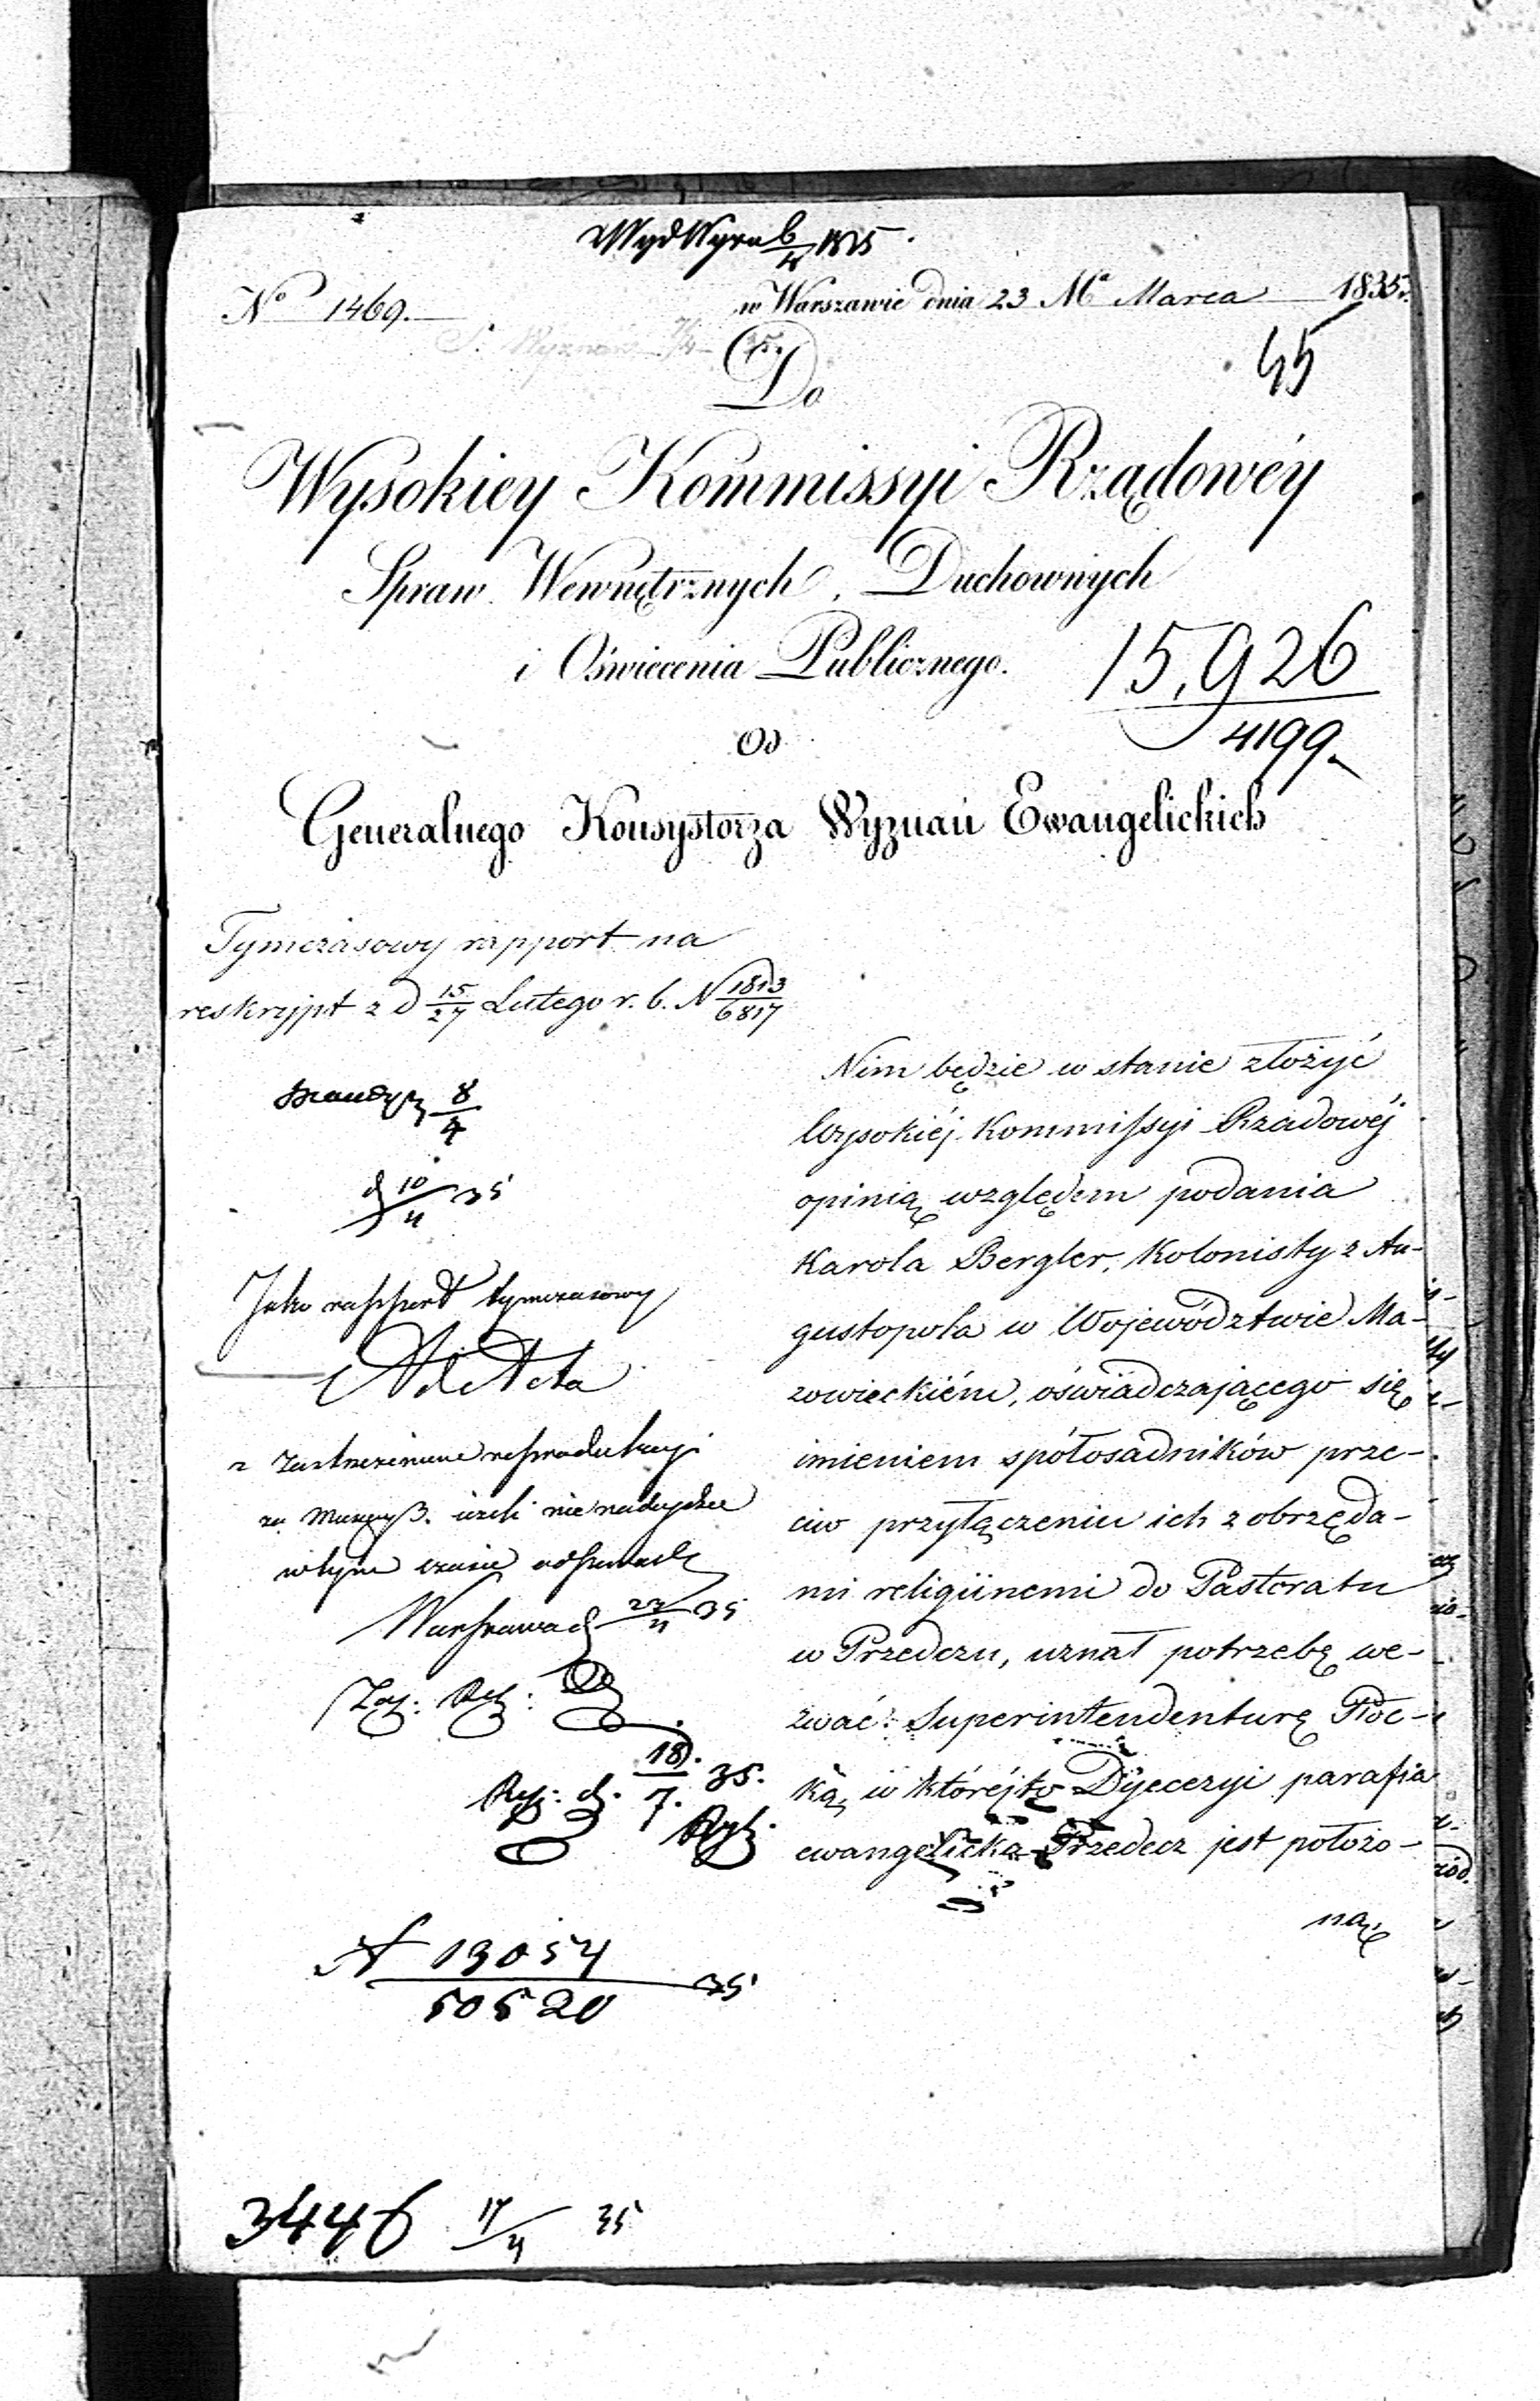 No 1469.
w Warszawie dnia 23 Ma Marca 1835.
45
Do
Wysokiey Kommissyi Rządowéy
Spraw Wewnętrznych, Duchownych
i Oświecenia Publicznego.
15,926
4199.
Od
Generalnego Konsystorza Wyznań Ewangelickich
Tymczasowy rapport na
reskrypt z d 15/27 Lutego r. b. N 1813/6817
8/4
d 10/4 35
Jako rapport tymczasowy
Ad Acta
w tym czasie
Warszawa d 35
Reg: d. 18/7. 35.
N 13054/50520 35
3446 17/4 35
Nim będzie w stanie złożyć
Wysokiéj Kommissyi Rządowéj
opinią względem podania
Karola Bergler, Kolonisty z Au-
gustopola w Województwie Ma-
zowieckiém, oświadczającego się
imieniem spółosadników prze-
ciw przyłączeniu ich z obrzęda-
mi religiinemi do Pastoratu
w Przedczu, uznał potrzebę we-
zwać Superintendenturę Płoc-
ką, w któréjto Dyecezyi parafia
ewangelicka Przedecz jest położo-
ną,